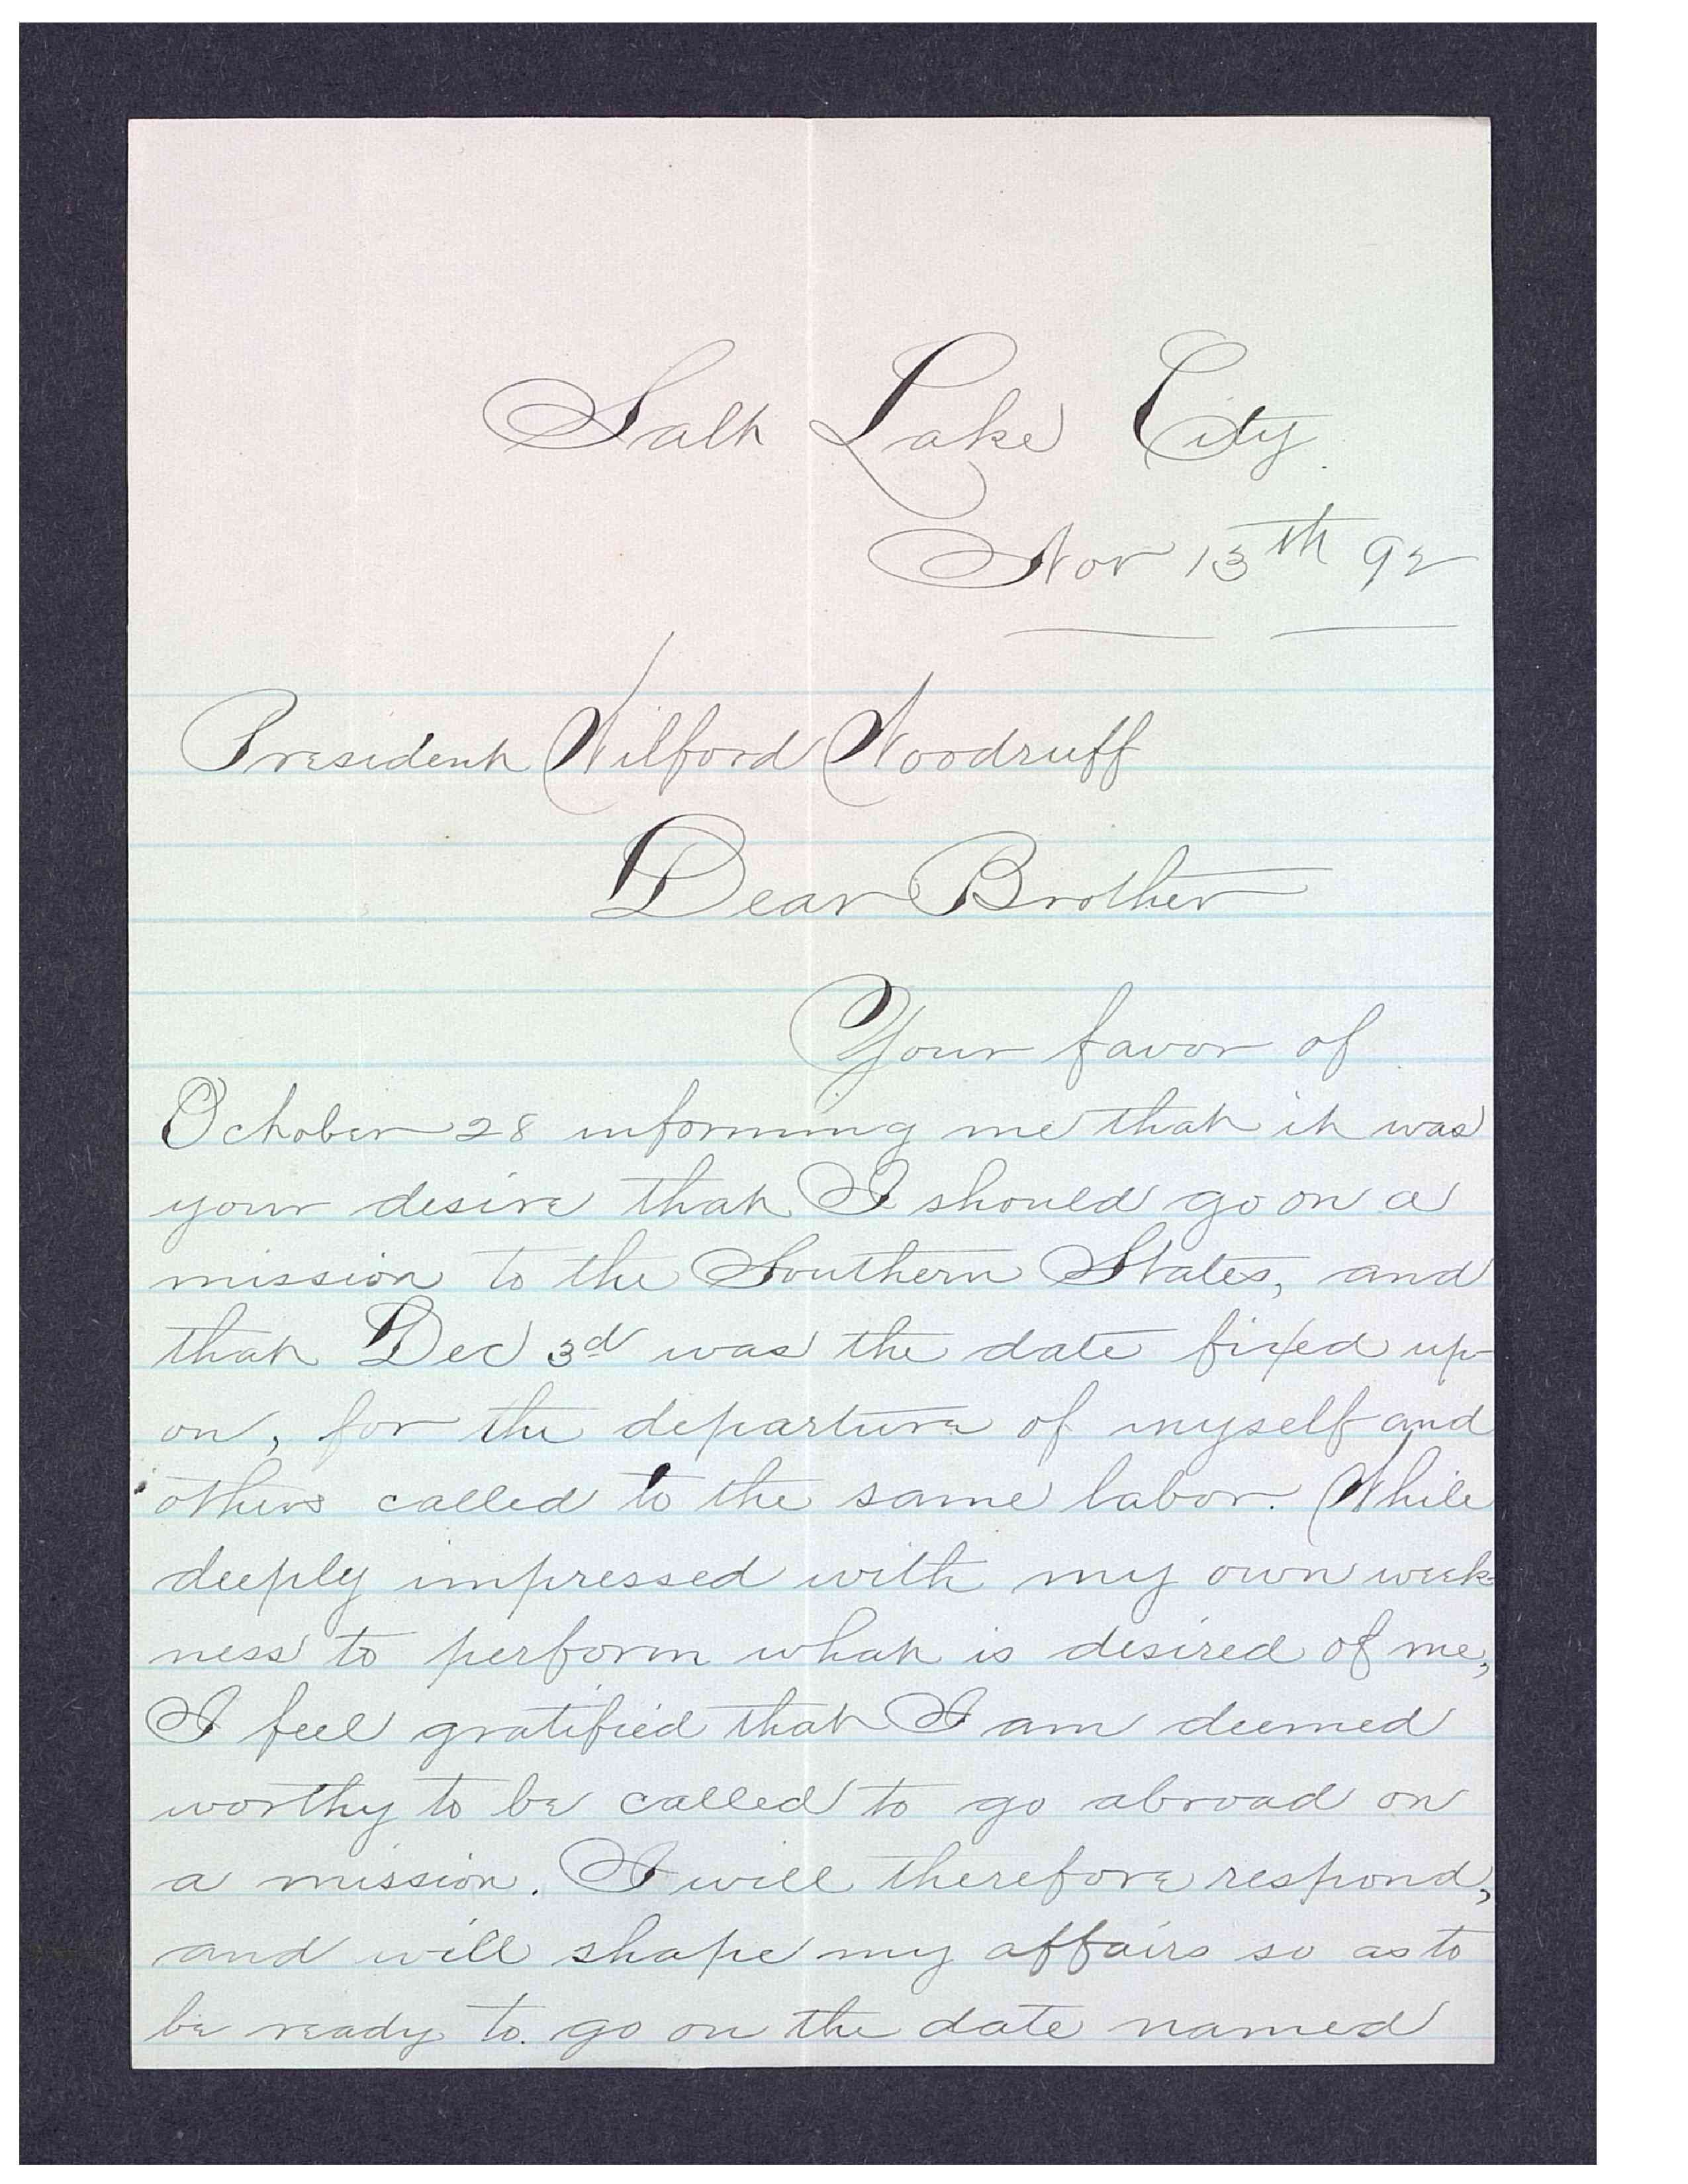 Salt Lake City.
Nov 13th 92
President Wilford Woodruff
Dear Brother
Your favor of
October 28 informing me that it was
your desire that I should go on a
mission to the Southern States, and
that Dec 3d was the date fixed up-
on, for the departure of myself and
others called to the same labor. While
deeply impressed with my own week-
ness to perform what is desired of me,
I feel gratified that I am deemed
worthy to be called to go abroad on
a mission. I will therefore respond,
and will shape my affairs so as to
be ready to go on the date named